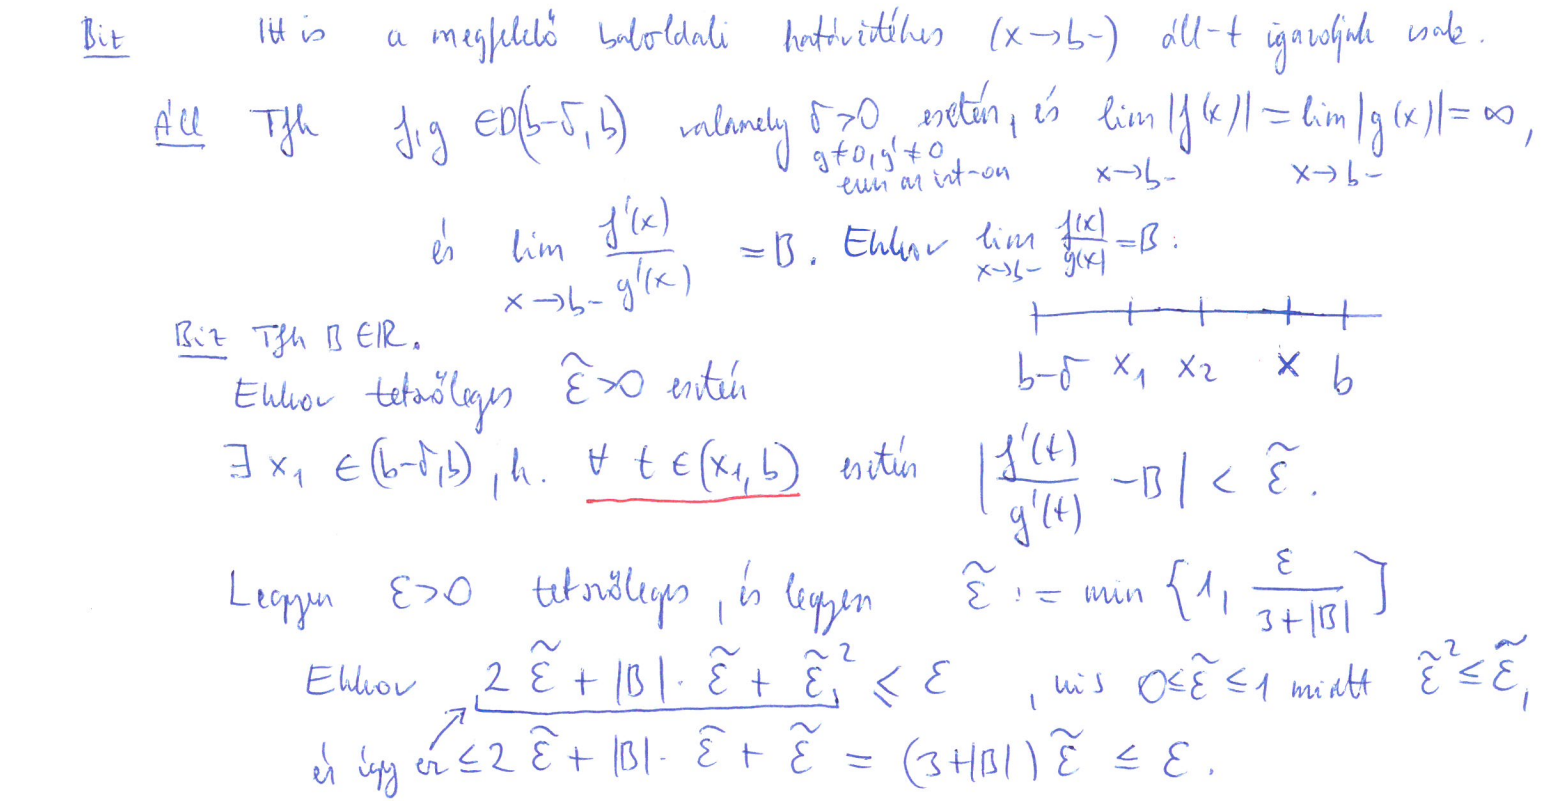 Biz Itt is a megfelelő baloldali határértékes (x→b-) áll-t igazoljuk csak.
Áll Tfh f,g ∈D(b-δ,b) valamely δ>0 esetén, és lim |f(x)| = lim |g(x)| = ∞,
g≠0, g'≠0 x→b- x→b-
ezen az int-on
és lim f'(x)/g'(x) = B. Ekkor lim f(x)/g(x) = B.
x→b- x→b-
Biz Tfh B∈ℝ.
b-δ x₁ x₂ x b
Ekkor tetszőleges ε̃>0 esetén
∃ x₁ ∈(b-δ,b), h. ∀ t∈(x₁,b) esetén |f'(t)/g'(t) - B| < ε̃.
Legyen ε>0 tetszőleges, és legyen ε̃ := min {1, ε/(3+|B|)}
Ekkor 2ε̃ + |B|·ε̃ + ε̃² ≤ ε, uis 0≤ε̃≤1 miatt ε̃²≤ε̃,
és így ez ≤ 2ε̃ + |B|·ε̃ + ε̃ = (3+|B|)ε̃ ≤ ε.